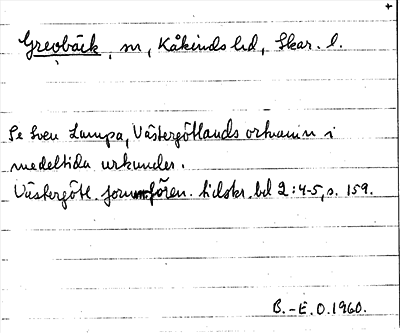 +
Grevbäck, sn, Kåkinds hd, Skar. l.
Se Sven Lampa, Västergötlands ortnamn i
medeltida urkunder.
Västergötl. fornmfören. tidskr. bd 2:4-5, s. 159.
B.-E.O.1960.